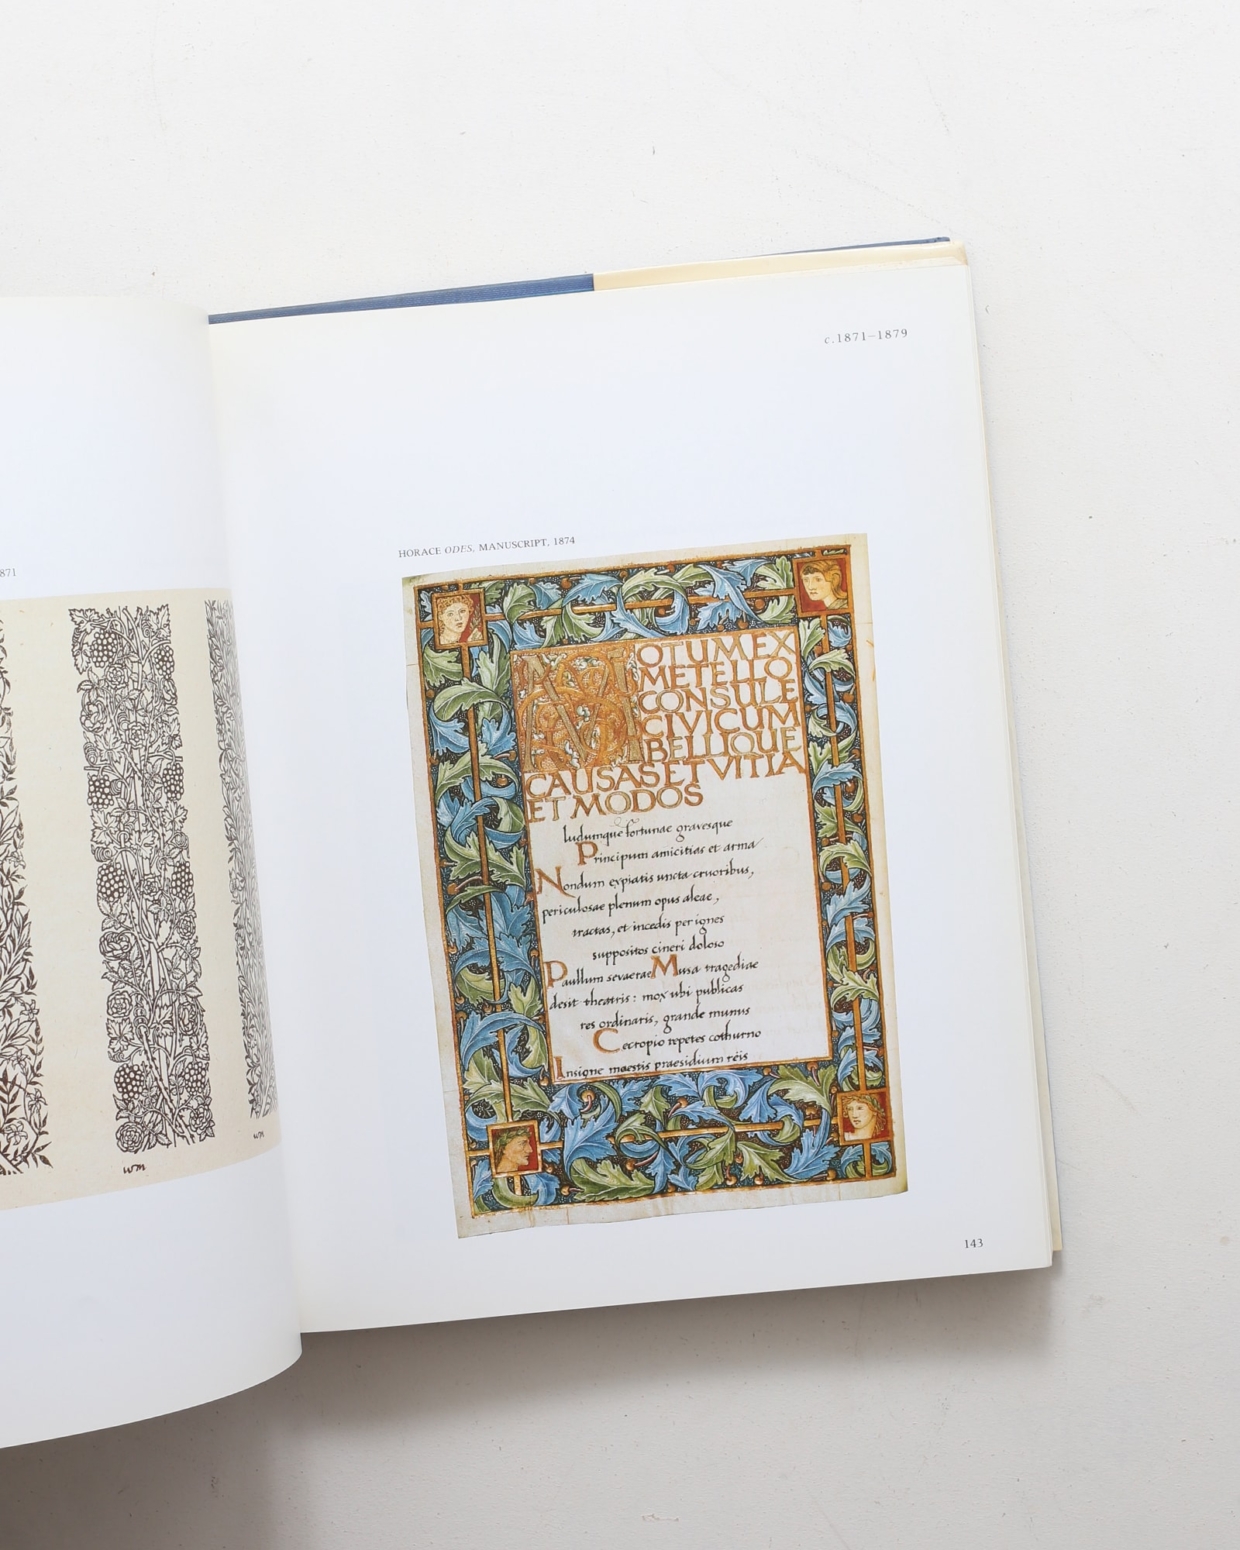 871
wm
wm
c.1871–1879
HORACE ODES, MANUSCRIPT, 1874
MOTUM EX
METELLO
CONSULE
CIVICUM
BELLIQUE
CAUSAS ET VITIA
ET MODOS
ludumque fortunae gravesque
Principum amicitias et arma
Nondum expiatis uncta cruoribus,
periculosae plenum opus aleae,
tractas, et incedis per ignes
suppositos cineri doloso
Paullum severae Musa tragediae
desit theatris: mox ubi publicas
res ordinaris, grande munus
Cecropio repetes cothurno
Insigne maestis praesidium reis
143